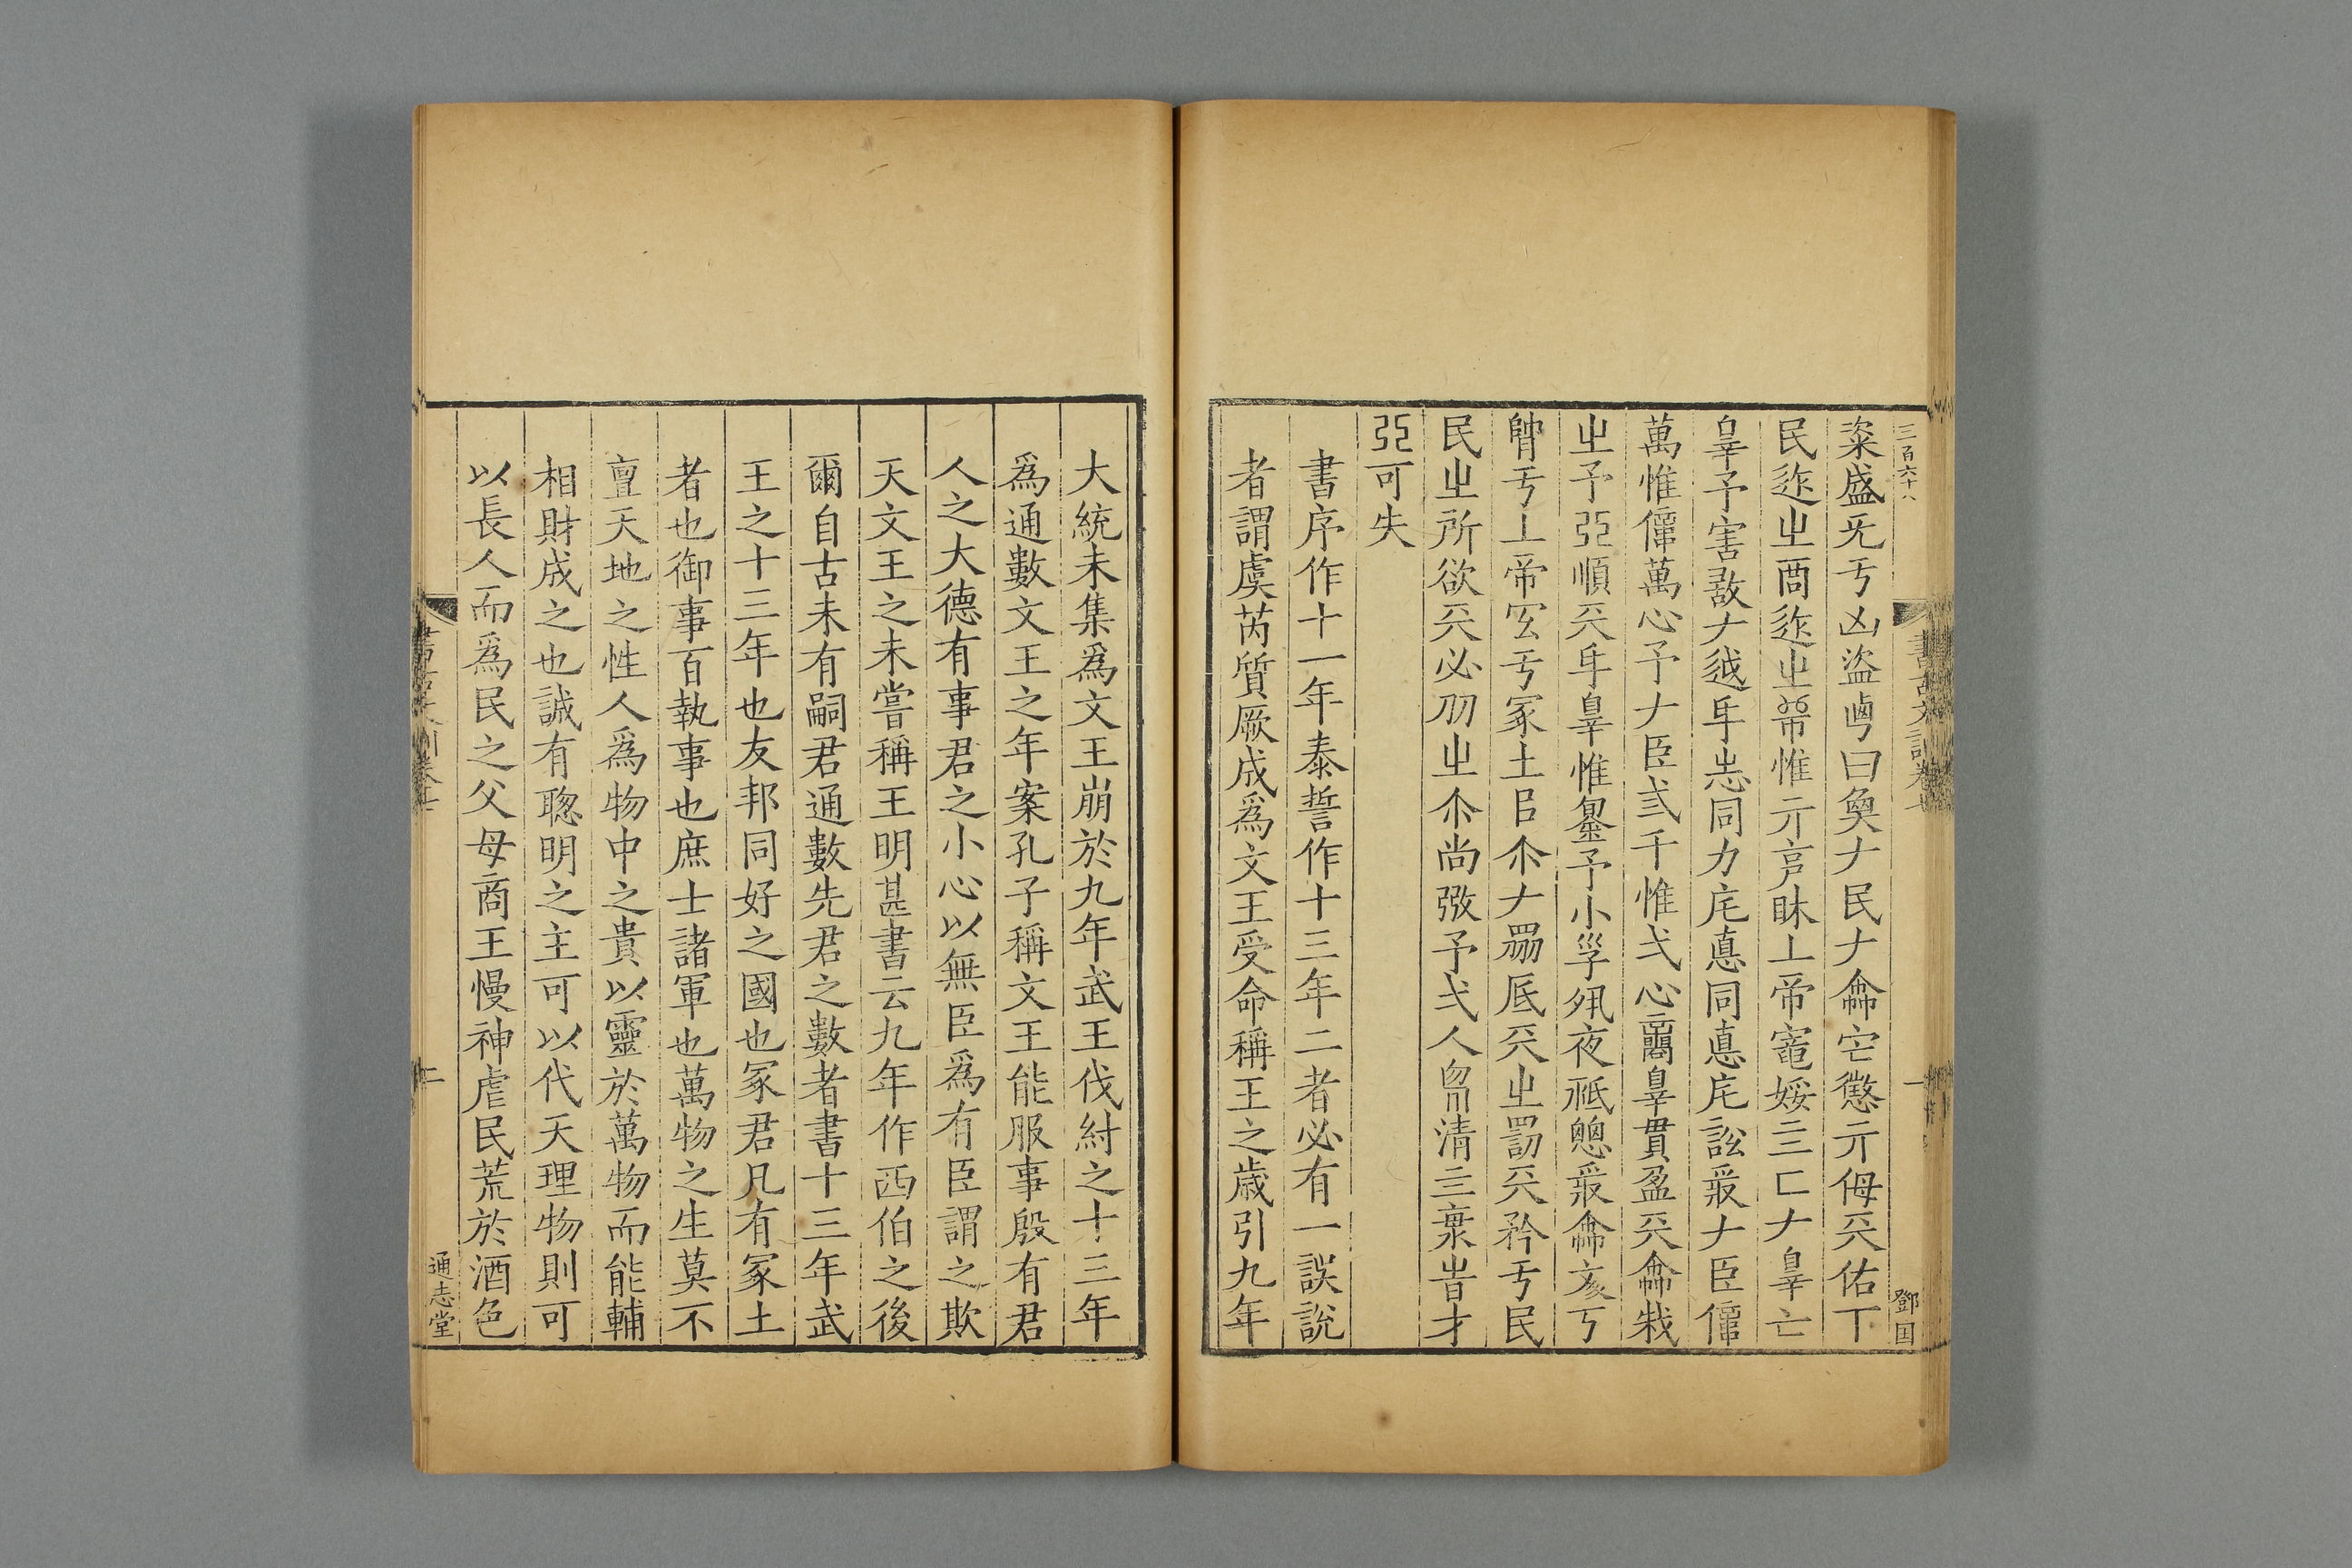 三百六十八
書古文訓卷七
一
鄧国
粢盛旡亏凶盜卥曰奐ナ民ナ侖宅懲亓侮兲佑丅
民迮㞢啇迮㞢帝惟亓亯昧丄帝竉婑亖匚ナ辠亡
辠予害敢ナ越厇㞢同力庑悳同悳庑訟受ナ臣億
萬惟億萬心予ナ臣弎千惟弌心辠貫盈兲侖栽
㞢予弫順兲辠惟鈞予小孚夙夜祗受侖亥丂
亏丄帝宐亏冢土㠯尒ナ底兲㞢罰兲矜亏民
民㞢所欲兲必㞢尒尚弼予弌人清亖旹才
弫可失
書序作十一年泰誓作十三年二者必有一誤說
者謂虞芮質厥成爲文王受命稱王之歲引九年
大統未集爲文王崩於九年武王伐紂之十三年
爲通數文王之年案孔子稱文王能服事殷有君
人之大德有事君之小心以無臣爲有臣謂之欺
天文王之未嘗稱王明甚書云九年作西伯之後
爾自古未有嗣君通數先君之數者書十三年武
王之十三年也友邦同好之國也冢君凡有冢土
者也御事百執事也庶士諸軍也萬物之生莫不
亶天地之性人爲物中之貴以靈於萬物而能輔
相財成之也誠有聰明之主可以代天理物則可
以長人而爲民之父母商王慢神虐民荒於酒色
書古文訓卷七
二
通志堂